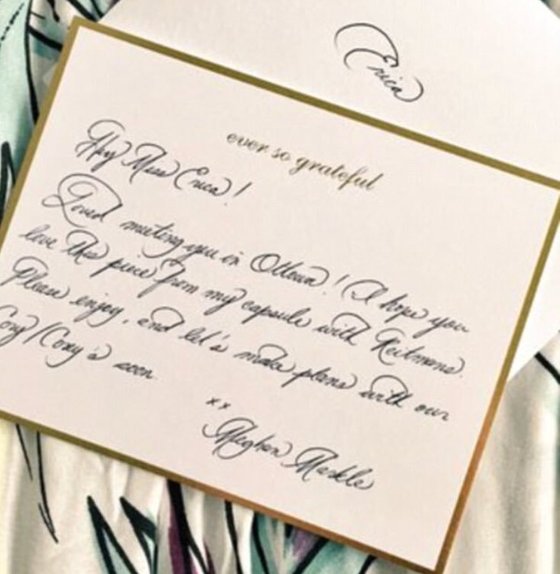 Erica
ever so grateful
Hey Miss Erica!
Loved meeting you in Ottawa! I hope you
love this piece from my capsule with Reitmans.
Please enjoy, and let's make plans with our
Cory/Corey's soon
xx
Meghan Markle